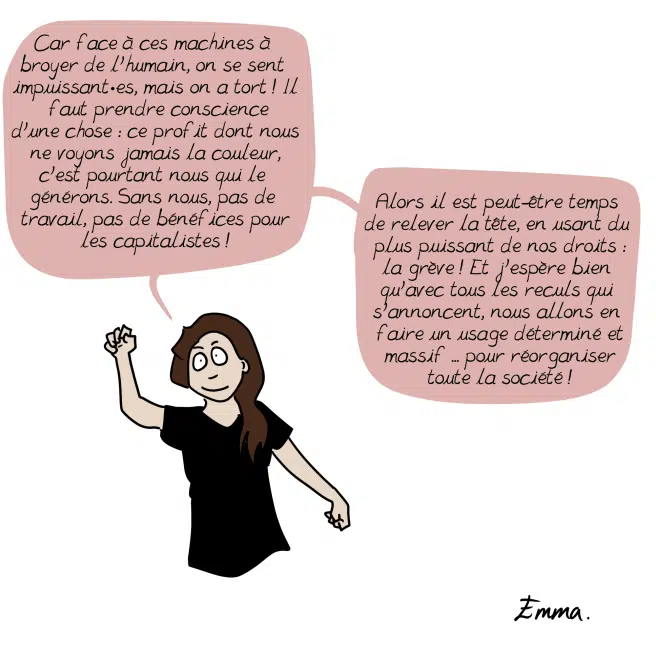 Car face à ces machines à
broyer de l'humain, on se sent
impuissant•es, mais on a tort ! Il
faut prendre conscience
d'une chose : ce profit dont nous
ne voyons jamais la couleur,
c'est pourtant nous qui le
générons. Sans nous, pas de
travail, pas de bénéfices pour
les capitalistes !
Alors il est peut-être temps
de relever la tête, en usant du
plus puissant de nos droits :
la grève ! Et j'espère bien
qu'avec tous les reculs qui
s'annoncent, nous allons en
faire un usage déterminé et
massif ... pour réorganiser
toute la société !
Emma.